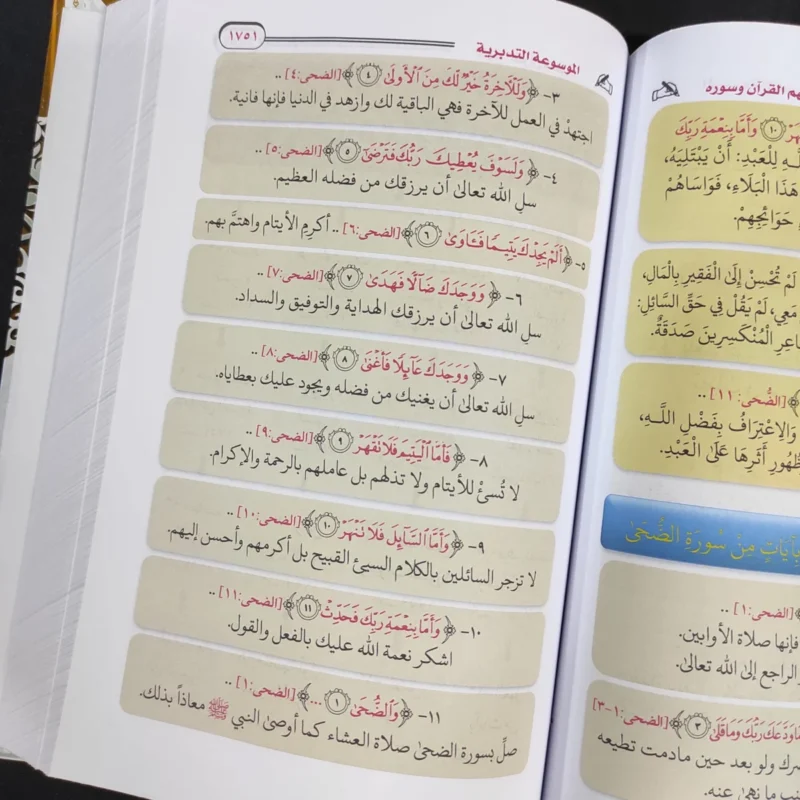 هم القرآن وسوره
وَأَمَّا بِنِعْمَةِ رَبِّكَ
ـهِ لِلْعَبْدِ: أَنْ يَبْتَلِيَهُ،
هَذَا الْبَلَاءِ، فَوَاسَاهُمْ
حَوَائِجِهِمْ.
لَمْ تُحْسِنْ إِلَى الْفَقِيرِ بِالْمَالِ،
مَعِي، لَمْ يَقُلْ فِي حَقِّ السَّائِلِ:
اعِرِ الْمُنْكَسِرِينَ صَدَقَةٌ.
[الضُّحى: ١١] ..
وَالِاعْتِرَافُ بِفَضْلِ اللَّـهِ،
ظُهُورِ أَثَرِهَا عَلَى الْعَبْدِ.
بِآيَاتٍ مِنْ سُورَةِ الضُّحَىٰ
[الضحى:١] ..
فإنها صلاة الأوابين.
والراجع إلى الله تعالىٰ.
مَاوَدَّعَكَ رَبُّكَ وَمَا قَلَىٰ ٣ [الضحى:١-٣]
صرك ولو بعد حين مادمت تطيعه
ـنب ما نهىٰ عنه.
الموسوعة التدبرية
١٧٥١
٣- ﴿وَلَلْآخِرَةُ خَيْرٌ لَّكَ مِنَ الْأُولَىٰ ٤﴾ [الضحى:٤] ..
اجتهدْ في العمل للآخرة فهي الباقية لك وازهد في الدنيا فإنها فانية.
٤- ﴿وَلَسَوْفَ يُعْطِيكَ رَبُّكَ فَتَرْضَىٰ ٥﴾ [الضحى:٥] ..
سلِ الله تعالىٰ أن يرزقك من فضله العظيم.
٥- ﴿أَلَمْ يَجِدْكَ يَتِيمًا فَآوَىٰ ٦﴾ [الضحى:٦] .. أكرِمِ الأيتام واهتمَّ بهم.
٦- ﴿وَوَجَدَكَ ضَالًّا فَهَدَىٰ ٧﴾ [الضحى:٧] ..
سلِ الله تعالىٰ أن يرزقك الهداية والتوفيق والسداد.
٧- ﴿وَوَجَدَكَ عَائِلًا فَأَغْنَىٰ ٨﴾ [الضحى:٨] ..
سلِ الله تعالىٰ أن يغنيك من فضله ويجود عليك بعطاياه.
٨- ﴿فَأَمَّا الْيَتِيمَ فَلَا تَقْهَرْ ٩﴾ [الضحى:٩] ..
لا تُسئْ للأيتام ولا تذلهم بل عاملهم بالرحمة والإكرام.
٩- ﴿وَأَمَّا السَّائِلَ فَلَا تَنْهَرْ ١٠﴾ [الضحى:١٠] ..
لا تزجر السائلين بالكلام السيئ القبيح بل أكرمهم وأحسن إليهم.
١٠- ﴿وَأَمَّا بِنِعْمَةِ رَبِّكَ فَحَدِّثْ ١١﴾ [الضحى:١١] ..
اشكر نعمة الله عليك بالفعل والقول.
١١- ﴿وَالضُّحَىٰ ١ ...﴾ [الضحى:١] ..
صلِّ بسورة الضحىٰ صلاة العشاء كما أوصىٰ النبي ﷺ معاذاً بذلك.